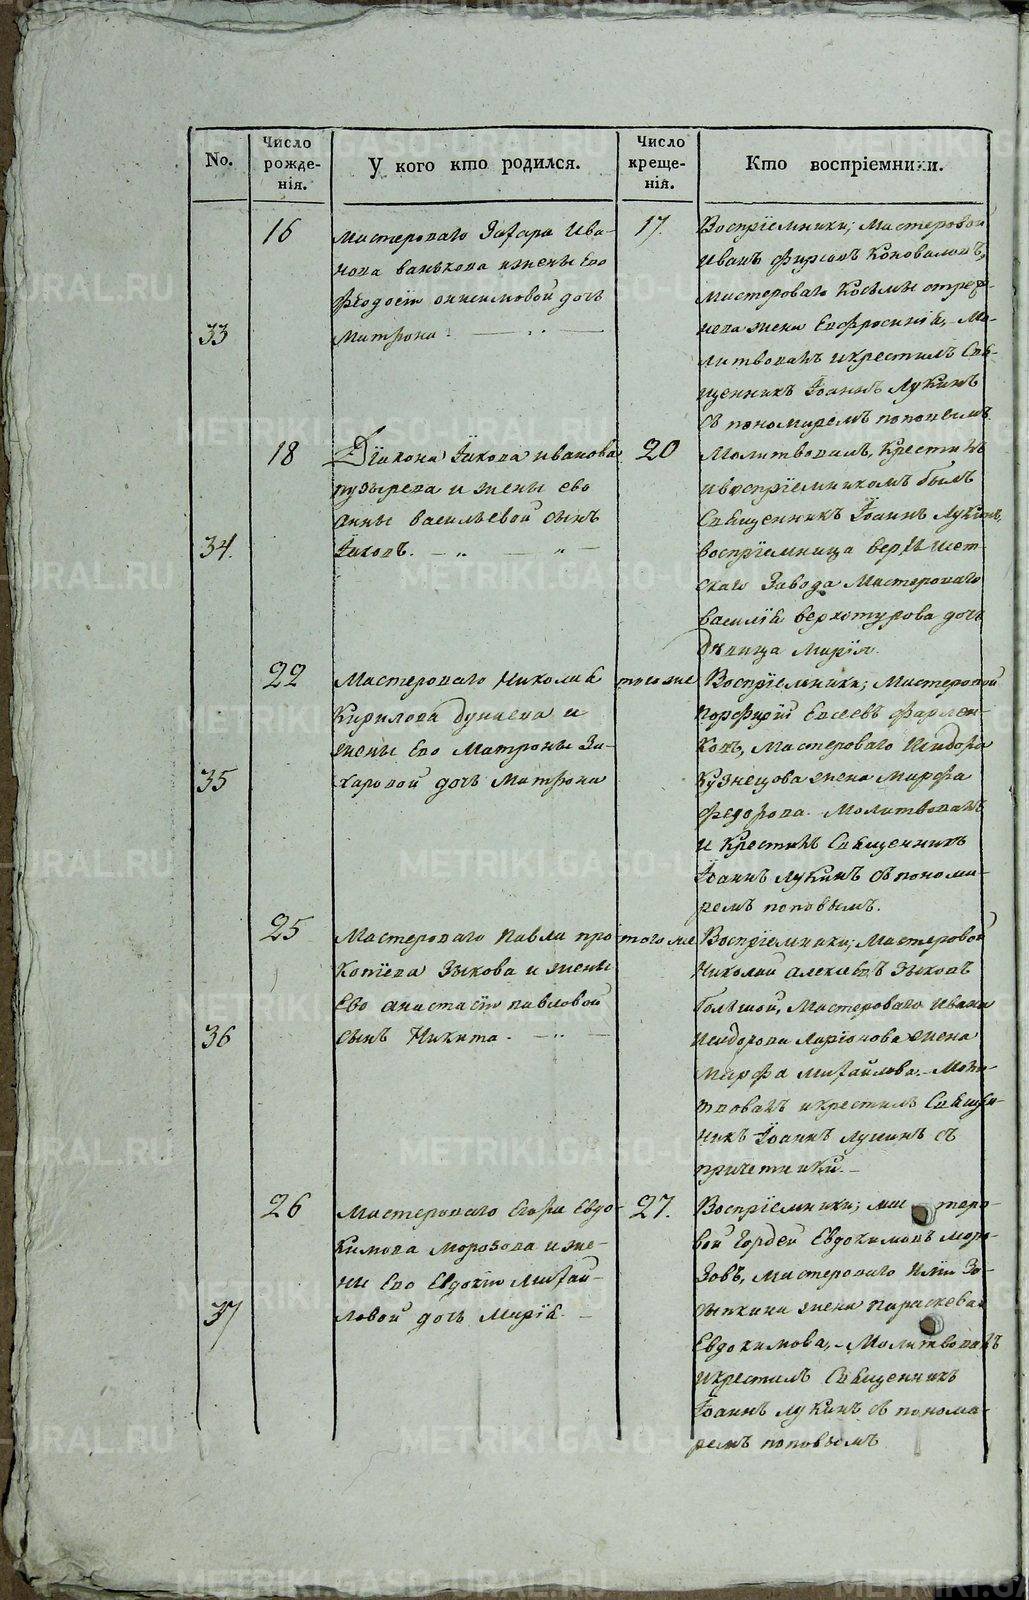 No.
Число рожде-нія.
У кого кто родился.
Число креще-нія.
Кто воспріемники.
16
мастероваго Захара Ива-
нова ванькова ижены Его
Феодосіи онисимовой дочь
33
Матрона.
17.
Воспріемники; Мастеровой
Иванъ Фирсовъ Коноваловъ,
мастероваго Косьмы
жена Евфросинія, Мо-
литвовалъ икрестилъ Свя-
щенникъ Іоаннъ Лукинъ
съ пономаремъ поповымъ.
18
Діакона Іакова иванова
пузырева и жены его
Анны васильевой сынъ
34.
Іаковъ.
20
Молитвовалъ, Крестилъ
ивоспріемникомъ былъ
Священникъ Іоаннъ Лукинъ,
воспріемница верхъисет-
скаго Завода Мастероваго
василія верхотурова дочь
дѣвица Марія.
22
Мастероваго Николая
Кирилова Дунаева и
жены Его Матроны За-
35
харовой дочь Матрона
тогоже
Воспріемники; Мастеровой
Порфирій Евсеевъ
Мастероваго Исидора
Кузнецова жена Марфа
Федорова. Молитвовалъ
и Крестилъ Священникъ
Іоаннъ лукинъ съ понома-
ремъ поповымъ.
25
Мастероваго Павла про-
копіева Зыкова и жены
Его анастасіи павловой
36
сынъ Никита.
тогоже
Воспріемники; Мастеровой
Николай Алексеевъ Зыковъ
большой, Мастероваго Ивана
Исидорова Ларіонова жена
Марфа михайлова. Моли-
твовалъ икрестилъ Священ-
никъ Іоаннъ лукинъ съ
причетники.
26
Мастероваго Егора Евдо-
кимова Морозова иже-
ны Его Евдокіи Михай-
37
ловой дочь Марія.
27.
Воспріемники; мастеро-
вой Гордей Евдокимовъ моро-
зовъ, мастероваго Иліи Зо-
сыпкина жена параскева
Евдокимова, Молитвовалъ
икрестилъ Священникъ
Іоаннъ лукинъ съ понома-
ремъ поповымъ
METRIKI.GASO-URAL.RU